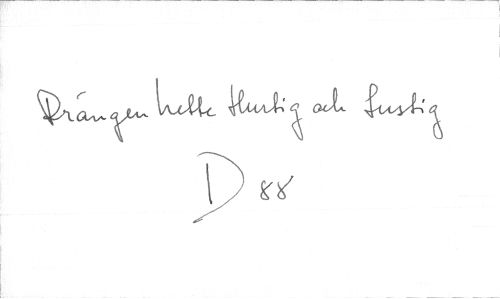 Drängen hette Hurtig och Lustig
D 88